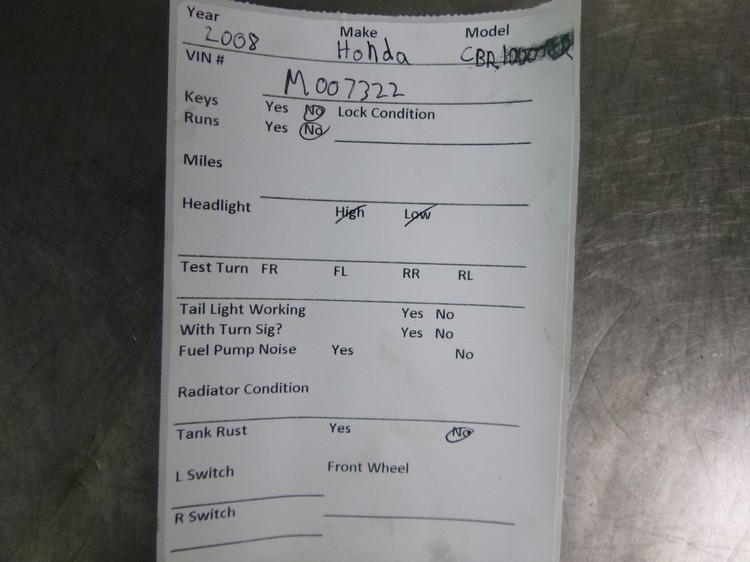 Year Make Model
2008 Honda CBR1000RR
VIN #
M007322
Keys Yes No Lock Condition
Runs Yes No
Miles
Headlight High Low
Test Turn FR FL RR RL
Tail Light Working Yes No
With Turn Sig? Yes No
Fuel Pump Noise Yes No
Radiator Condition
Tank Rust Yes No
L Switch Front Wheel
R Switch